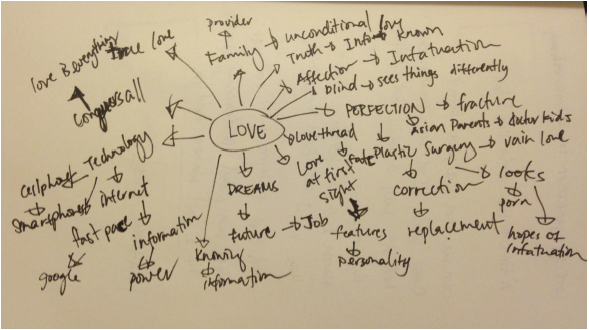 provider
Family → unconditional love
Truth → Info → known
Affection → Infatuation
blind → sees things differently
love is everything
True love
conquers all
LOVE
PERFECTION → fracture
Asian Parents → doctor kids
Plastic Surgery → vain love
Love thread
fate
Love at first sight
features
personality
correction
replacement
looks
porn
hopes of infatuation
Technology
cellphone
smartphones
internet
fast pace
information
google
power
DREAMS
future → Job
Knowing
information